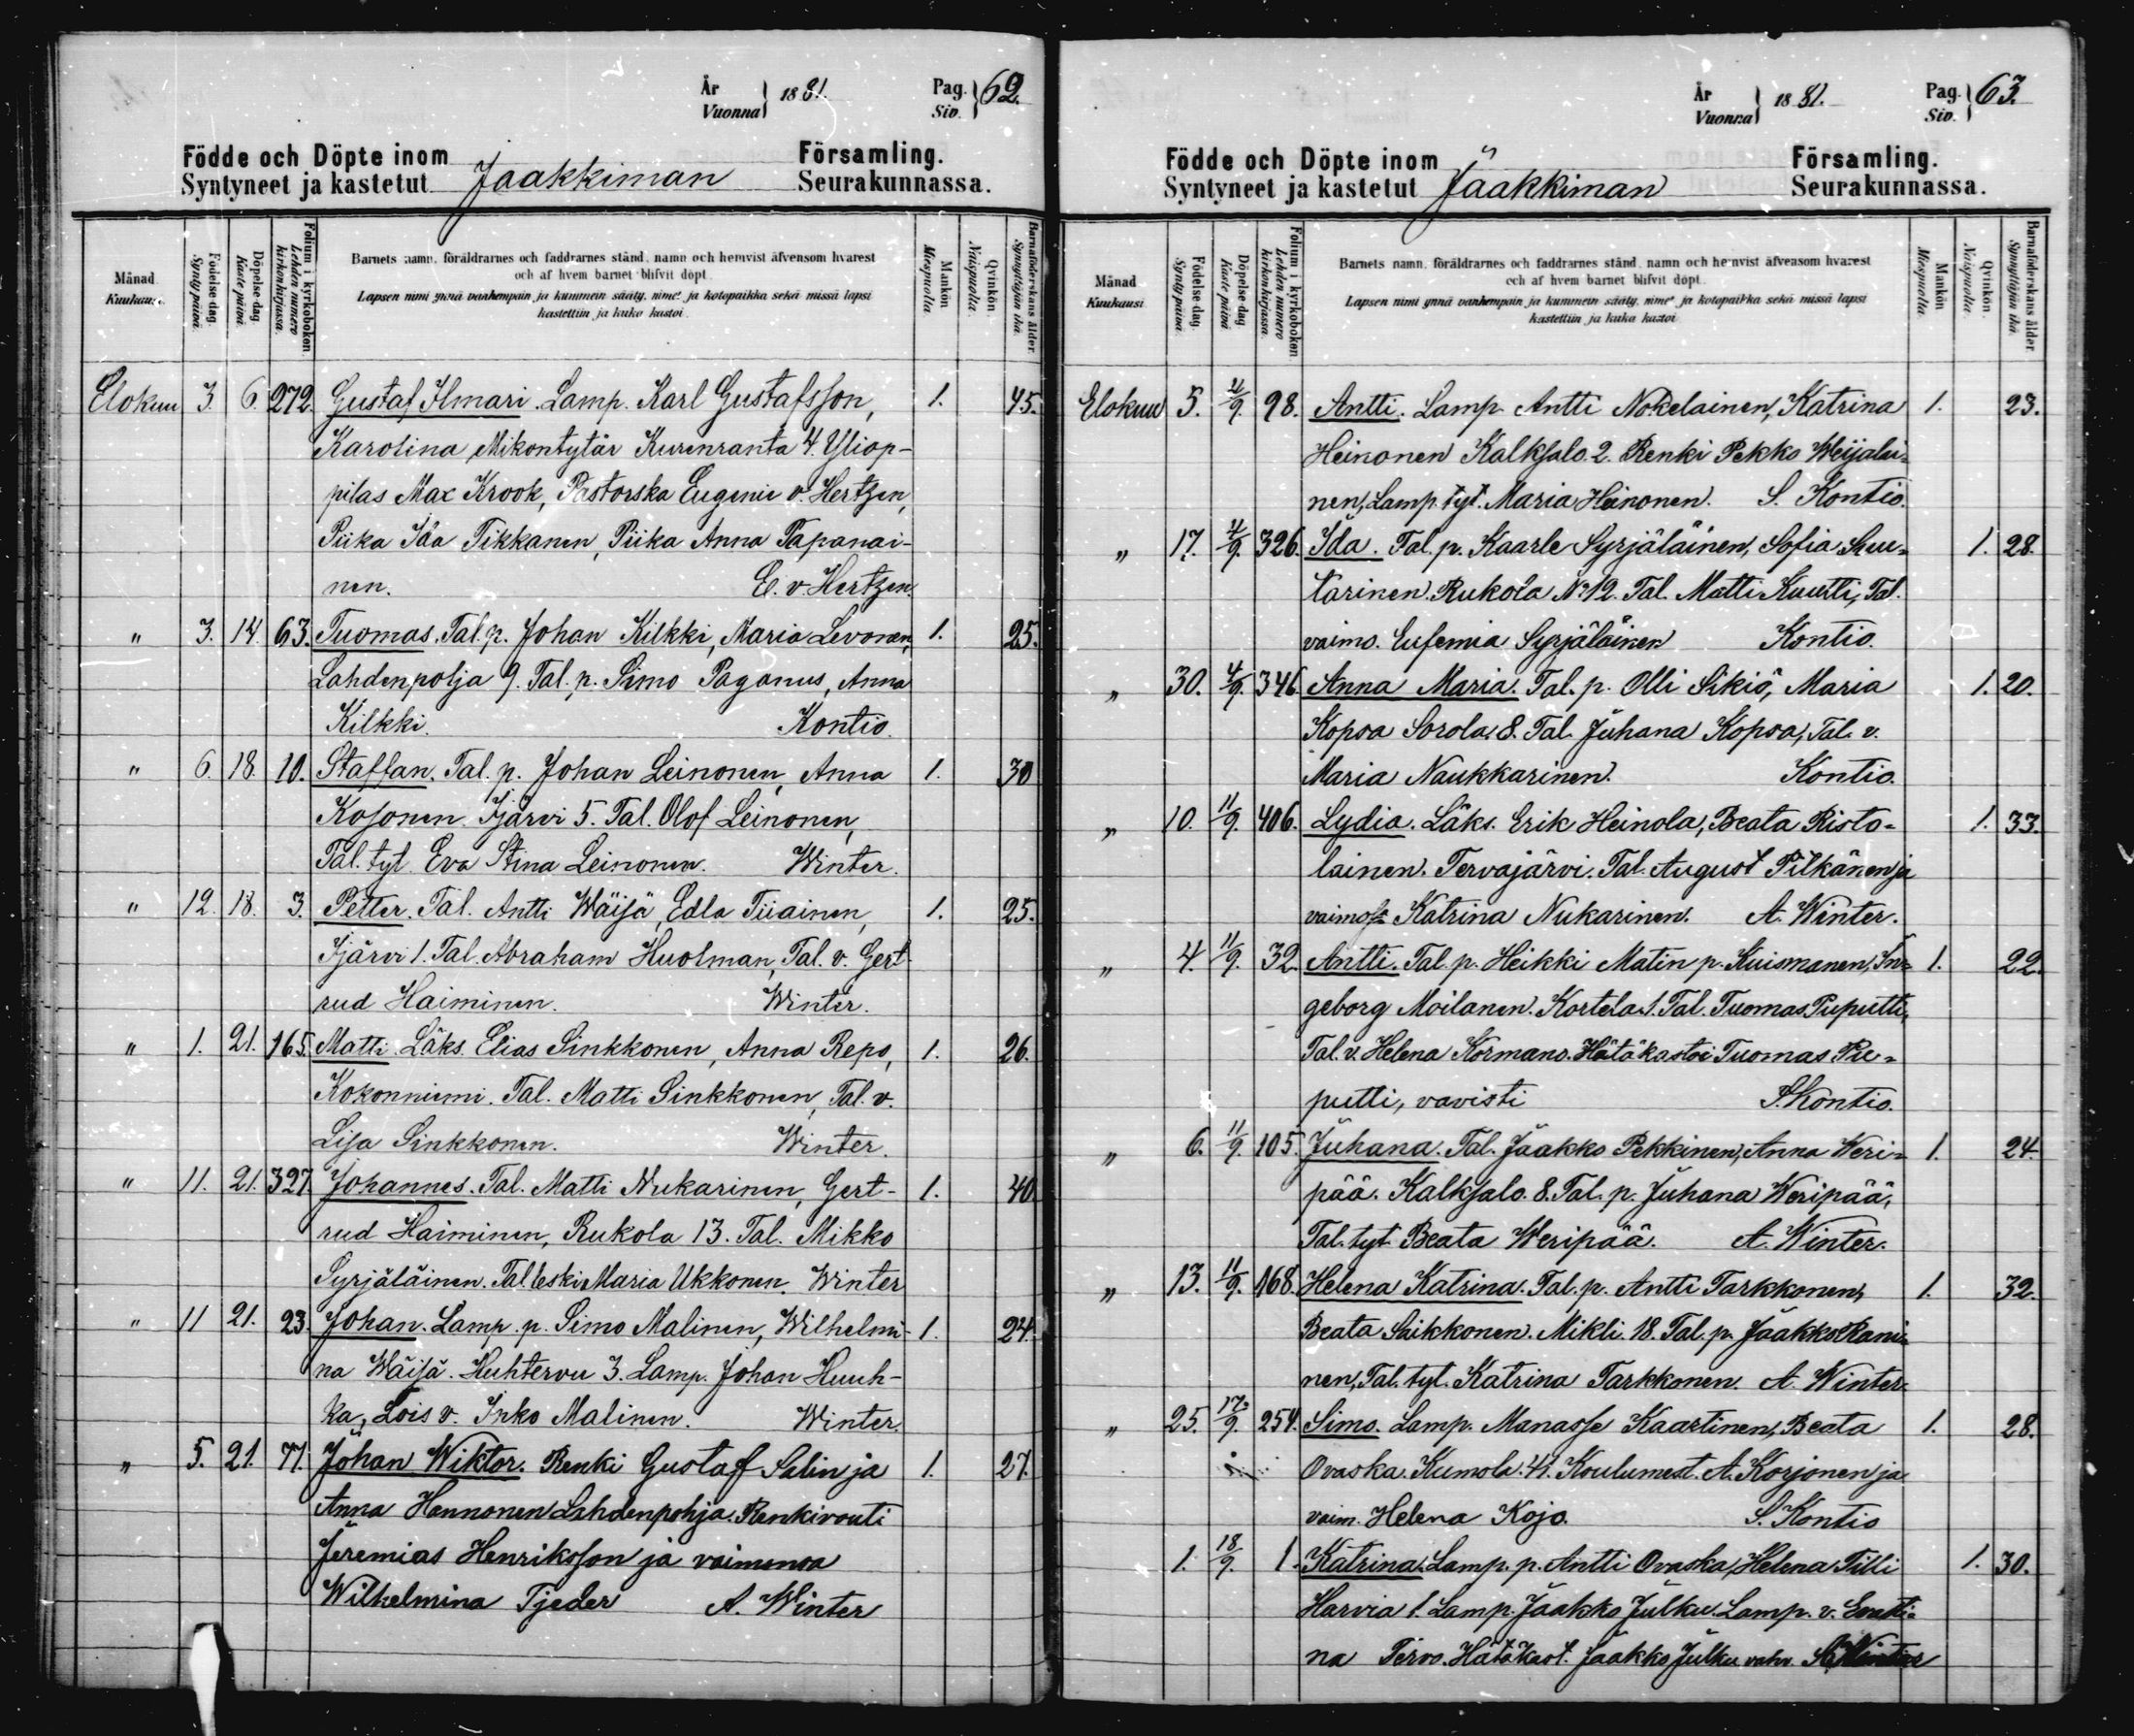 År
Vuonna 1881. Pag. Siv. 62.
Födde och Döpte inom Församling.
Syntyneet ja kastetut Jaakkiman Seurakunnassa.
Månad Kuukausi. Födelse dag. Synty päivä. Döpelse dag. Kaste päivä. Folium i kyrkoboken. Lehden numero kirkonkirjassa. Barnets namn, föräldrarnes och faddrarnes stånd, namn och hemvist äfvensom hvarest Mankön. Miespuolia. Qvinkön. Naispuolia. Barnaföderskans ålder. Synnyttäjän ikä.
och af hvem barnet blifvit döpt.
Lapsen nimi ynnä vanhempain ja kummein sääty, nimet ja kotopaikka sekä missä lapsi
kastettiin ja kuka kastoi.
Elokuu 3. 6. 272. Gustaf Ilmari. Lamp. Karl Gustafsson, 1. 45.
Karolina Mikontytär Kurenranta 4. Yliop-
pilas Max Krook, Pastorska Eugenie v. Hertzen,
Piika Ida Tikkanen, Piika Anna Tapanai-
nen. E. v. Hertzen.
" 3. 14. 63. Tuomas. Tal. p. Johan Kilkki, Maria Levonen, 1. 25.
Lahdenpolja 9. Tal. p. Simo Paganus, Anna
Kilkki. Kontio.
" 6. 18. 10. Staffan. Tal. p. Johan Leinonen, Anna 1. 30
Kosonen. Ijärvi 5. Tal. Olof Leinonen,
Tal. tyt. Eva Stina Leinonen. Winter.
" 12. 18. 3. Petter. Tal. Antti Wäisä, Edla Tiiainen, 1. 25.
Ijärvi 1. Tal. Abraham Huolman, Tal. v. Gert-
rud Haiminen. Winter.
" 1. 21. 165. Matti. Läks. Elias Sinkkonen, Anna Repo, 1. 26.
Kokonniemi. Tal. Matti Sinkkonen, Tal. v.
Lisa Sinkkonen. Winter.
" 11. 21. 327. Johannes. Tal. Matti Nukarinen, Gert- 1. 40
rud Haiminen, Rukola 13. Tal. Mikko
Syrjäläinen. Tal. leski Maria Ukkonen. Winter
" 11 21. 23. Johan. Lamp. p. Simo Malinen, Wilhelmi- 1. 24.
na Wäisä. Huhtervu 3. Lamp. Johan Huuh-
ka, Lois v. Inko Malinen. Winter.
" 5. 21. 71. Johan Wiktor. Renki Gustaf Salin ja 1. 27.
Anna Hannonen Lahdenpohja. Renkivouti
Jeremias Henriksson ja vaimonsa
Wilhelmina Tjeder A. Winter
År
Vuonna 1881. Pag. Siv. 63.
Födde och Döpte inom Församling.
Syntyneet ja kastetut Jaakkiman Seurakunnassa.
Månad Kuukausi Födelse dag. Synty päivä. Döpelse dag. Kaste päivä. Folium i kyrkoboken. Lehden numero kirkonkirjassa. Barnets namn, föräldrarnes och faddrarnes stånd, namn och hemvist äfvensom hvarest Mankön. Miespuolia. Qvinkön. Naispuolia. Barnaföderskans ålder. Synnyttäjän ikä.
och af hvem barnet blifvit döpt.
Lapsen nimi ynnä vanhempain ja kummein sääty, nimet ja kotopaikka sekä missä lapsi
kastettiin ja kuka kastoi
Elokuu 5. 4/9. 98. Antti. Lamp. Antti Nokelainen, Katrina 1. 23.
Heinonen Kalksalo. 2. Renki Pekko Weijalai-
nen, Lamp. tyt. Maria Heinonen. S. Kontio.
" 17. 4/9. 326. Ida. Tal. p. Kaarle Syrjäläinen, Sofia Suu- 1. 28.
tarinen. Rukola No 12. Tal. Matti Kuutti, Tal.
vaimo. Eufemia Syrjäläinen Kontio.
" 30. 4/9. 346. Anna Maria. Tal. p. Olli Sikiö, Maria 1. 20.
Kopsa Sorola. 8. Tal. Juhana Kopsa, Tal. v.
Maria Naukkarinen. Kontio.
" 10. 11/9. 406. Lydia. Läks. Erik Heinola, Beata Risto- 1. 33.
lainen. Tervajärvi. Tal. August Pitkänen ja
Katrina Nukarinen. A. Winter.
" 4. 11/9. 32. Antti. Tal. p. Heikki Matin p. Kuismanen, In- 1. 22.
geborg Moilanen. Kortela 1. Tal. Tuomas Puputti,
Tal. v. Helena Kormano. Hätäkastoi Tuomas Pu-
putti, vavisti S. Kontio.
" 6. 11/9. 105. Juhana. Tal. Jaakko Pekkinen, Anna Weri- 1. 24.
pää. Kalksalo. 8. Tal. p. Juhana Weripää,
Tal. tyt. Beata Weripää. A. Winter.
" 13. 11/9. 168. Helena Katrina. Tal. p. Antti Tarkkonen, 1. 32.
Beata Saikkonen. Mikli. 18. Tal. p. Jaakko Rami-
nen, Tal. tyt. Katrina Tarkkonen. A. Winter.
" 25. 17/9. 254. Simo. Lamp. Manasse Kaartinen, Beata 1. 28.
Ovaska. Kumola. 41. Koulumest. A. Korjonen ja
vaim. Helena Kojo. S. Kontio
1. 18/9. 1. Katrina. Lamp. p. Antti Ovaska, Helena Tilli 1. 30.
Harvia 1. Lamp. Jaakko Julku. Lamp. v.
na Tervo. Hätäkast. Jaakko Julku vahv. A. Winter